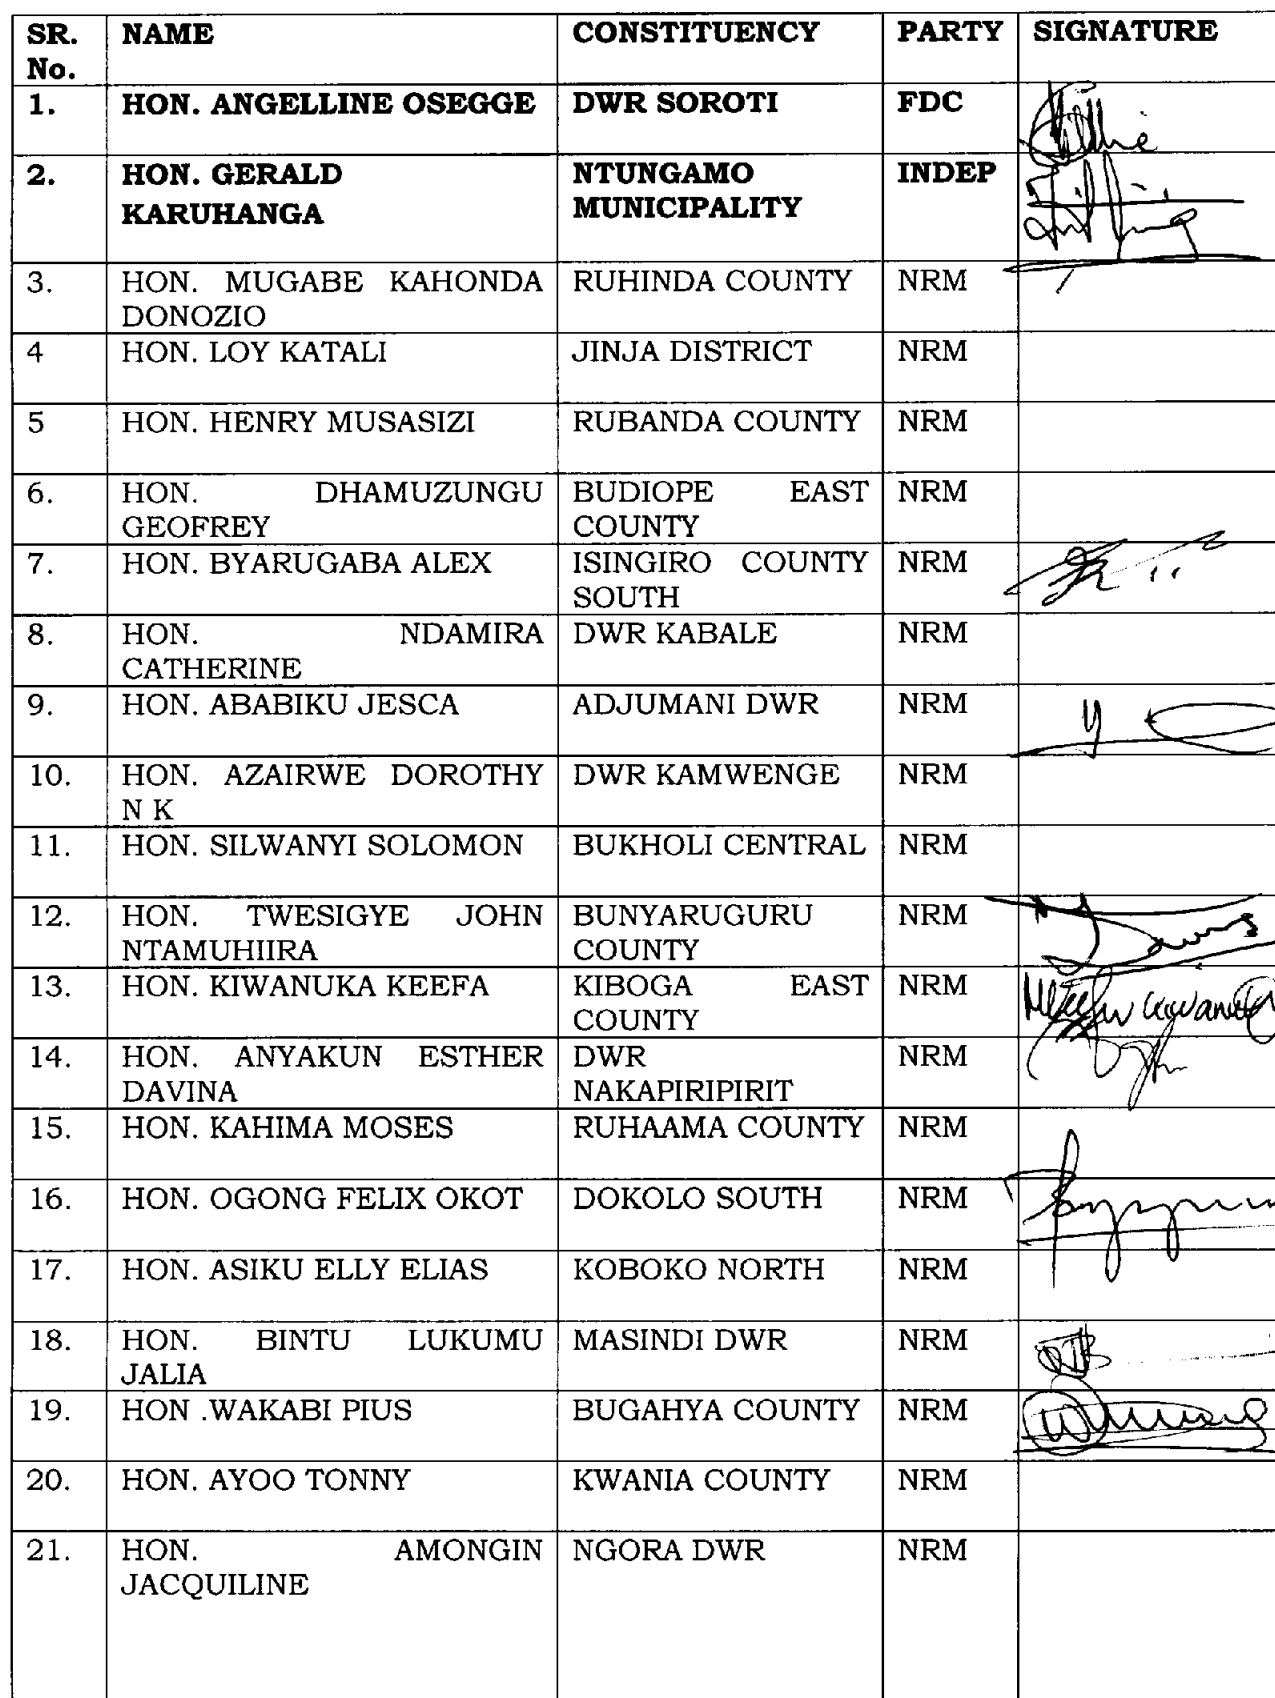 SR. No. NAME CONSTITUENCY PARTY SIGNATURE
1. HON. ANGELLINE OSEGGE DWR SOROTI FDC
2. HON. GERALD KARUHANGA NTUNGAMO MUNICIPALITY INDEP
3. HON. MUGABE KAHONDA DONOZIO RUHINDA COUNTY NRM
4 HON. LOY KATALI JINJA DISTRICT NRM
5 HON. HENRY MUSASIZI RUBANDA COUNTY NRM
6. HON. DHAMUZUNGU GEOFREY BUDIOPE EAST COUNTY NRM
7. HON. BYARUGABA ALEX ISINGIRO COUNTY SOUTH NRM
8. HON. NDAMIRA CATHERINE DWR KABALE NRM
9. HON. ABABIKU JESCA ADJUMANI DWR NRM
10. HON. AZAIRWE DOROTHY N K DWR KAMWENGE NRM
11. HON. SILWANYI SOLOMON BUKHOLI CENTRAL NRM
12. HON. TWESIGYE JOHN NTAMUHIIRA BUNYARUGURU COUNTY NRM
13. HON. KIWANUKA KEEFA KIBOGA EAST COUNTY NRM
14. HON. ANYAKUN ESTHER DAVINA DWR NAKAPIRIPIRIT NRM
15. HON. KAHIMA MOSES RUHAAMA COUNTY NRM
16. HON. OGONG FELIX OKOT DOKOLO SOUTH NRM
17. HON. ASIKU ELLY ELIAS KOBOKO NORTH NRM
18. HON. BINTU LUKUMU JALIA MASINDI DWR NRM
19. HON .WAKABI PIUS BUGAHYA COUNTY NRM
20. HON. AYOO TONNY KWANIA COUNTY NRM
21. HON. AMONGIN JACQUILINE NGORA DWR NRM